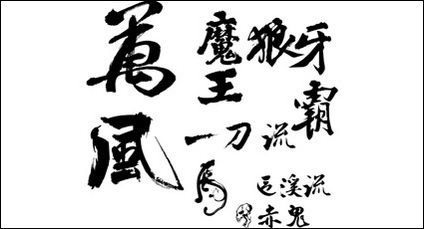 萬風
魔王
狼牙
霸
一刀流
馬
溪流
赤鬼